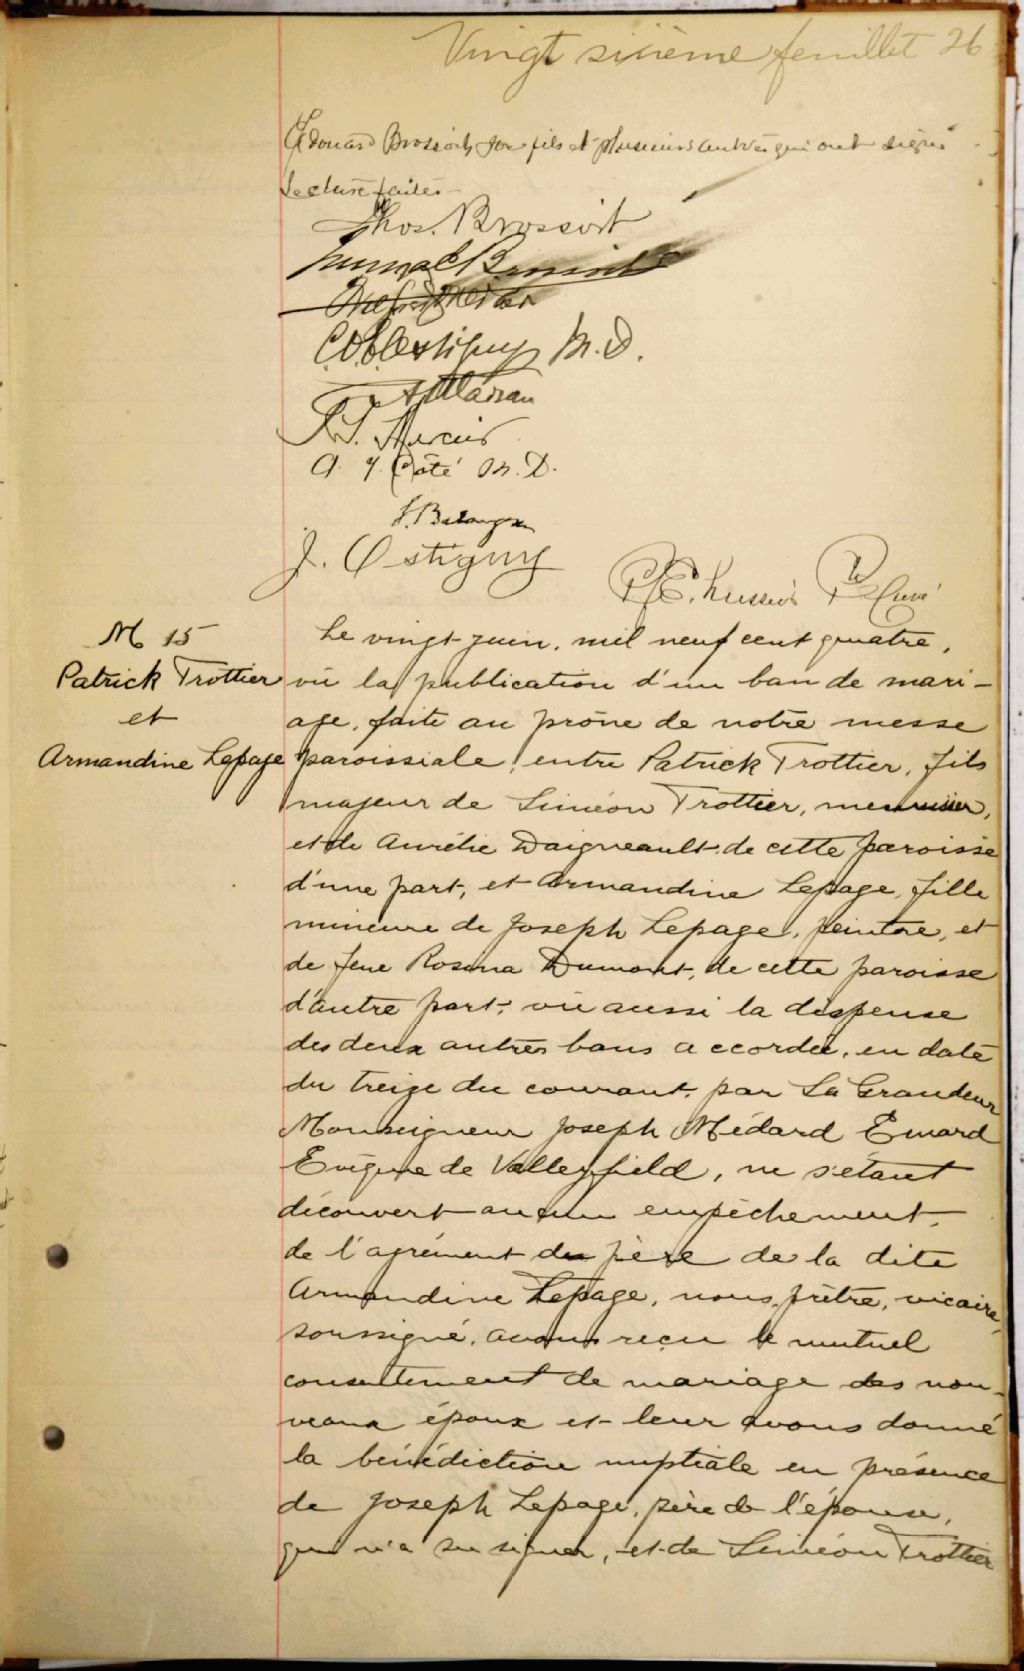 Vingt sixième feuillet 26
Édouard Brossoit, son fils et plusieurs autres qui ont signé
Lecture faite
Thos. Brossoit
M.D.
A. Y. Côté M.D.
J. Ostigny
Ptre Curé
M 15
Patrick Trottier
et
Armandine Lepage
Le vingt juin, mil neuf cent quatre,
vu la publication d'un ban de mari-
age, faite au prône de notre messe
paroissiale, entre Patrick Trottier, fils
majeur de Siméon Trottier, meunier,
et de Aurélie Daigneault de cette paroisse
d'une part, et Armandine Lepage, fille
mineure de Joseph Lepage, peintre, et
de feue Rosina Dumont, de cette paroisse
d'autre part; vu aussi la dispense
des deux autres bans accordée, en date
du treize du courant, par Sa Grandeur
Monseigneur Joseph Médard Emard
Evêque de Valleyfield, ne s'étant
découvert aucun empêchement,
de l'agrément du père de la dite
Armandine Lepage, nous, prêtre, vicaire,
soussigné, avons reçu le mutuel
consentement de mariage des nou-
veaux époux et leur avons donné
la bénédiction nuptiale en présence
de Joseph Lepage, père de l'épouse,
qui n'a su signer, et de Siméon Trottier